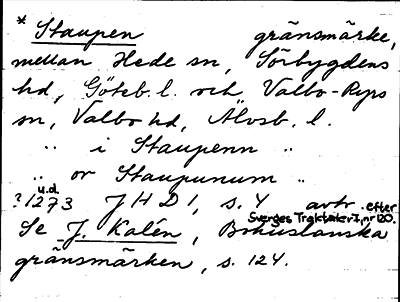 * Staupen gränsmärke,
mellan Hede sn, Sörbygdens
hd, Göteb. l. och Valbo-Ryrs
sn, Valbo hd, Älvsb. l.
" i Staupenn "
" or Staupunum "
u.d.
? 1273 J H D 1, s. 4 avtr. efter
Sverges Traktater I, nr 120.
Se J. Kalén, Bohuslänska
gränsmärken, s. 124.